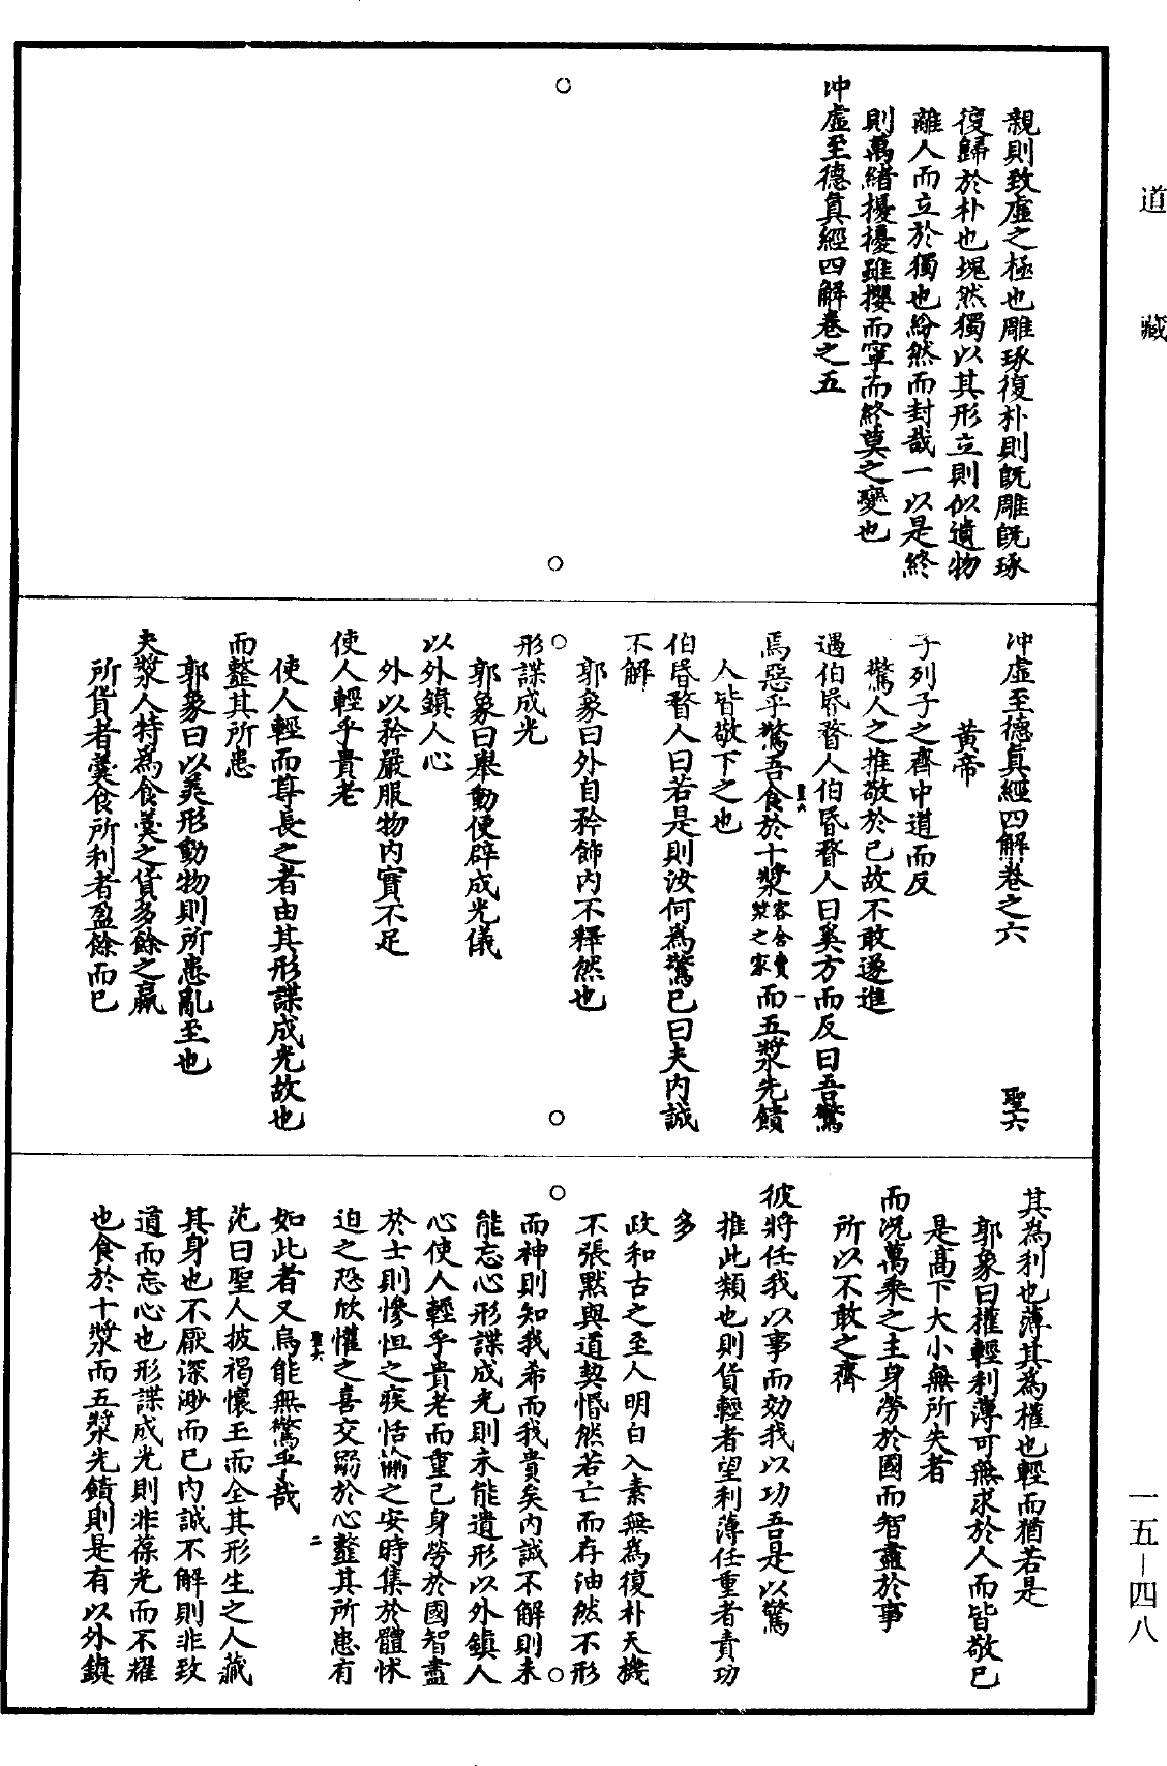 道藏
親則致虛之極也雕琢復朴則旣雕旣琢
復歸於朴也塊然獨以其形立則似遺物
離人而立於獨也紛然而封哉一以是終
則萬緒擾擾雖攖而寧而終莫之變也
冲虛至德真經四解卷之五
冲虛至德真經四解卷之六 聖六
黄帝
子列子之齊中道而反
驚人之推敬於己故不敢遂進
遇伯昏瞀人伯昏瞀人曰奚方而反曰吾驚
焉惡乎驚吾食於十漿客舍賣漿之家而五漿先饋
人皆敬下之也
伯昏瞀人曰若是則汝何爲驚己曰夫内誠
不解
郭象曰外自矜飾内不釋然也
形諜成光
郭象曰舉動便辟成光儀
以外鎮人心
外以矜嚴服物内實不足
使人輕乎貴老
使人輕而尊長之者由其形諜成光故也
而䪠其所患
郭象曰以美形動物則所患亂至也
夫漿人特爲食羹之貨多餘之贏
所貨者羹食所利者盈餘而已
其為利也薄其為權也輕而猶若是
郭象曰權輕利薄可無求於人而皆敬已
是高下大小無所失者
而況萬乘之主身勞於國而智盡於事
所以不敢之齊
彼將任我以事而効我以功吾是以驚
推此類也則貨輕者望利薄任重者責功
多
政和古之至人明白入素無為復朴天機
不張默與道契惛然若亡而存油然不形
而神則知我希而我貴矣内誠不解則未
能忘心形諜成光則未能遺形以外鎮人
心使人輕乎貴老而重己身勞於國智盡
於士則慘怛之疾恬愉之安時集於體怵
迫之恐欣懽之喜交溺於心䪠其所患有
如此者又烏能無驚乎哉
范曰聖人披褐懷玉而全其形生之人藏
其身也不厭深渺而已内誠不解則非致
道而忘心也形諜成光則非葆光而不耀
也食於十漿而五漿先饋則是有以外鎮
聖六
一
聖六
二
一五—四八